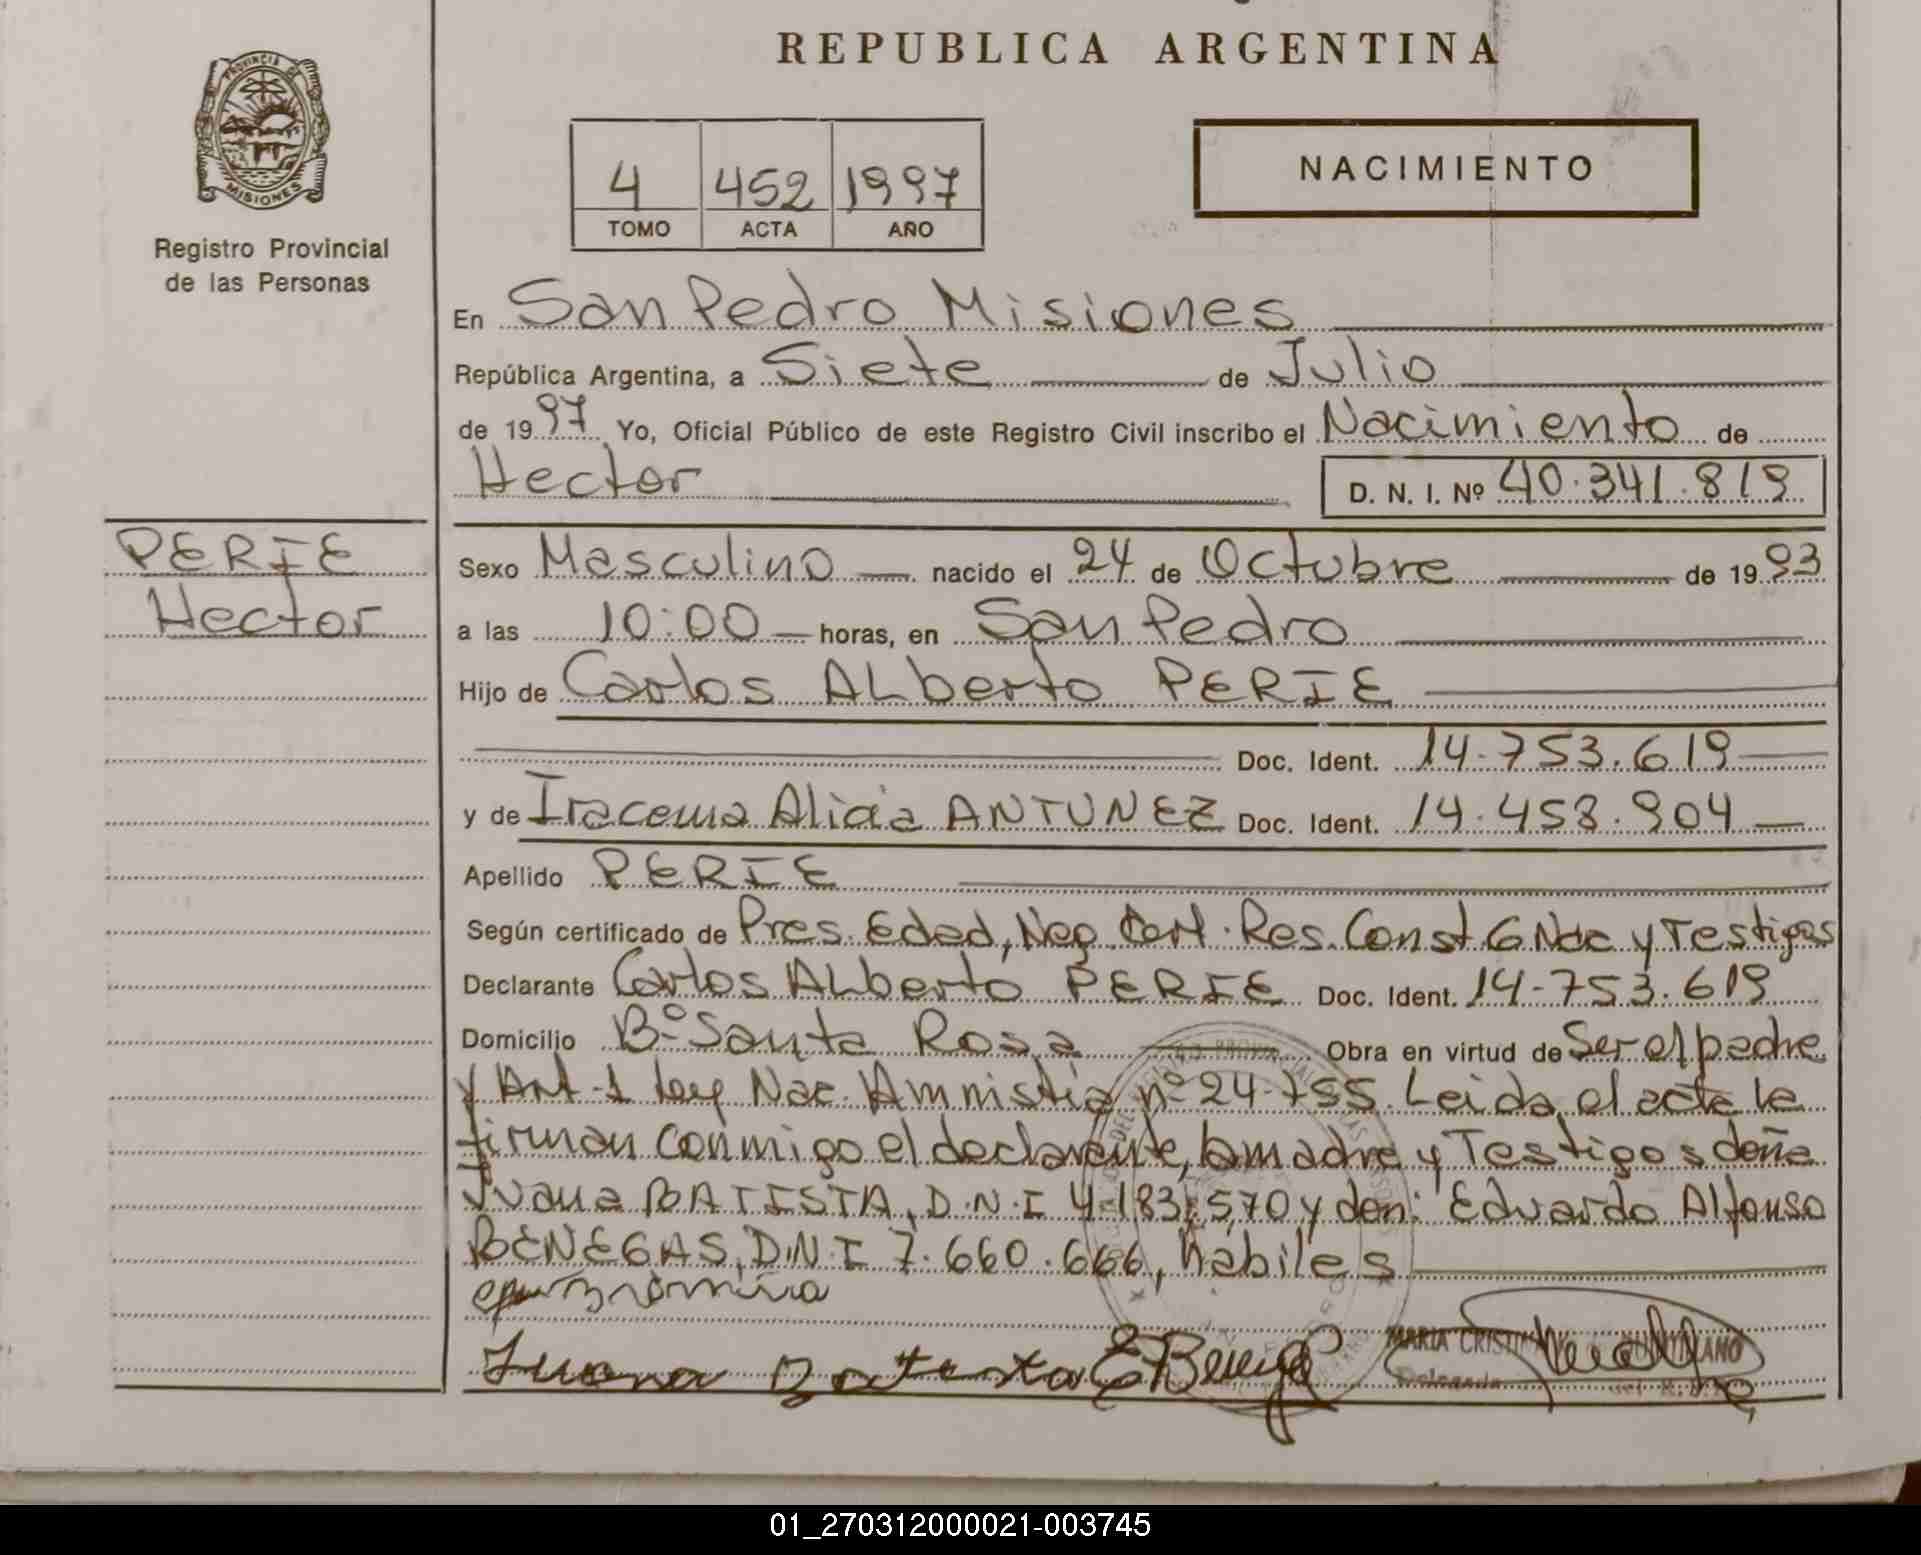 REPUBLICA ARGENTINA
PROVINCIA DE
MISIONES
Registro Provincial
de las Personas
4 452 1997
TOMO ACTA AÑO
NACIMIENTO
En San Pedro Misiones
República Argentina, a Siete de Julio
de 1997 Yo, Oficial Público de este Registro Civil inscribo el Nacimiento de
Hector D. N. I. Nº 40.341.819
PERIE
Hector
Sexo Masculino nacido el 24 de Octubre de 1993
a las 10:00 horas, en San Pedro
Hijo de Carlos ALberto PERIE
Doc. Ident. 14.753.619
y de Iracema Alicia ANTUNEZ Doc. Ident. 14.458.904
Apellido PERIE
Según certificado de Pres. Edad, Neg. Cert. Res. Const. G Nac y Testigos
Declarante Carlos ALberto PERIE Doc. Ident. 14.753.619
Domicilio Bº Santa Rosa Obra en virtud de Ser el padre
y Art. 1 ley Nac. Amnistia nº 24.755. Leida el acta la
firman conmigo el declarante, la madre y Testigos doña
Juana BATISTA, D.N.I 4.183.570 y don: Eduardo Alfonso
BENEGAS, D.N.I 7.660.666, habiles
Juana Batista E Beneg
MARIA CRISTINA
Delegada
01_270312000021-003745